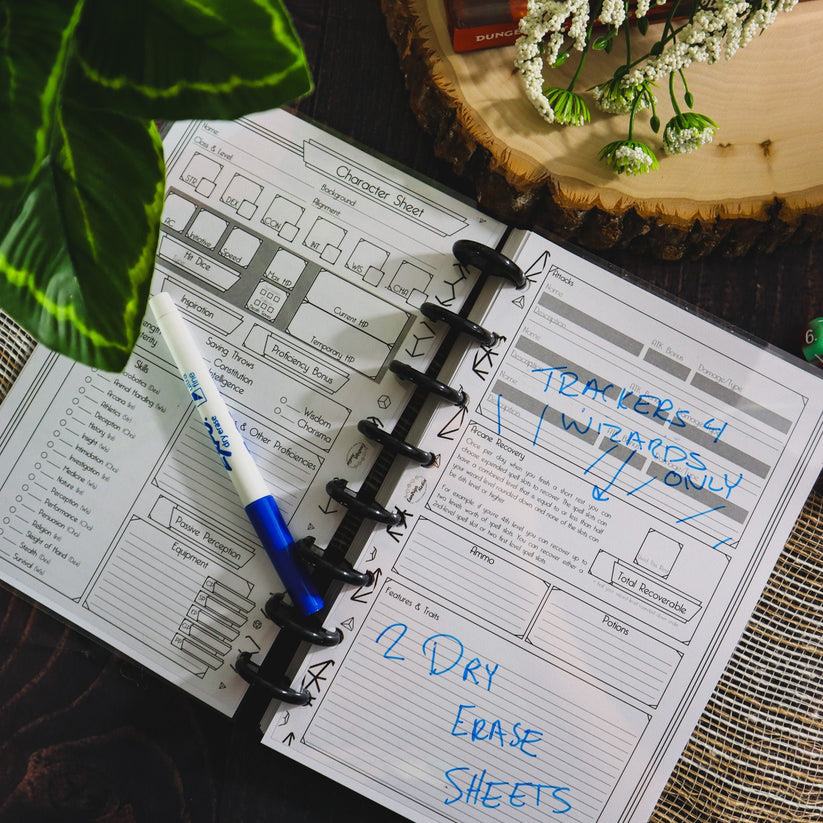 DUNGE
Character Sheet
Name
Class & Level
Background
Alignment
STR
DEX
CON
INT
WIS
CHR
AC
Initiative
Speed
Max HP
Current HP
Hit Dice
Temporary HP
Inspiration
Proficiency Bonus
Saving Throws
Strength
Constitution
Intelligence
Wisdom
Charisma
Skills
Acrobatics (Dex)
Animal Handling (Wis)
Arcana (Int)
Athletics (Str)
Deception (Cha)
History (Int)
Insight (Wis)
Intimidation (Cha)
Investigation (Int)
Medicine (Wis)
Nature (Int)
Perception (Wis)
Performance (Cha)
Persuasion (Cha)
Religion (Int)
Sleight of Hand (Dex)
Stealth (Dex)
Survival (Wis)
& Other Proficiencies
Passive Perception
Equipment
dry erase
fine
Attacks
Name
ATK Bonus
Damage/Type
Description
Name
Description
Name
Description
TRACKERS 4
WIZARDS
ONLY
Arcane Recovery
Once per day when you finish a short rest you can
choose expended spell slots to recover. The spell slots can
have a combined level that is equal to or less than half
your wizard level rounded down and none of the slots can
be 6th level or higher
For example if you're 4th level you can recover up to
two levels worth of spell slots. You can recover either a
2nd level spell slot or two first level spell slots
Total Recoverable
Ammo
Potions
Features & Traits
2 DRY
ERASE
SHEETS
6